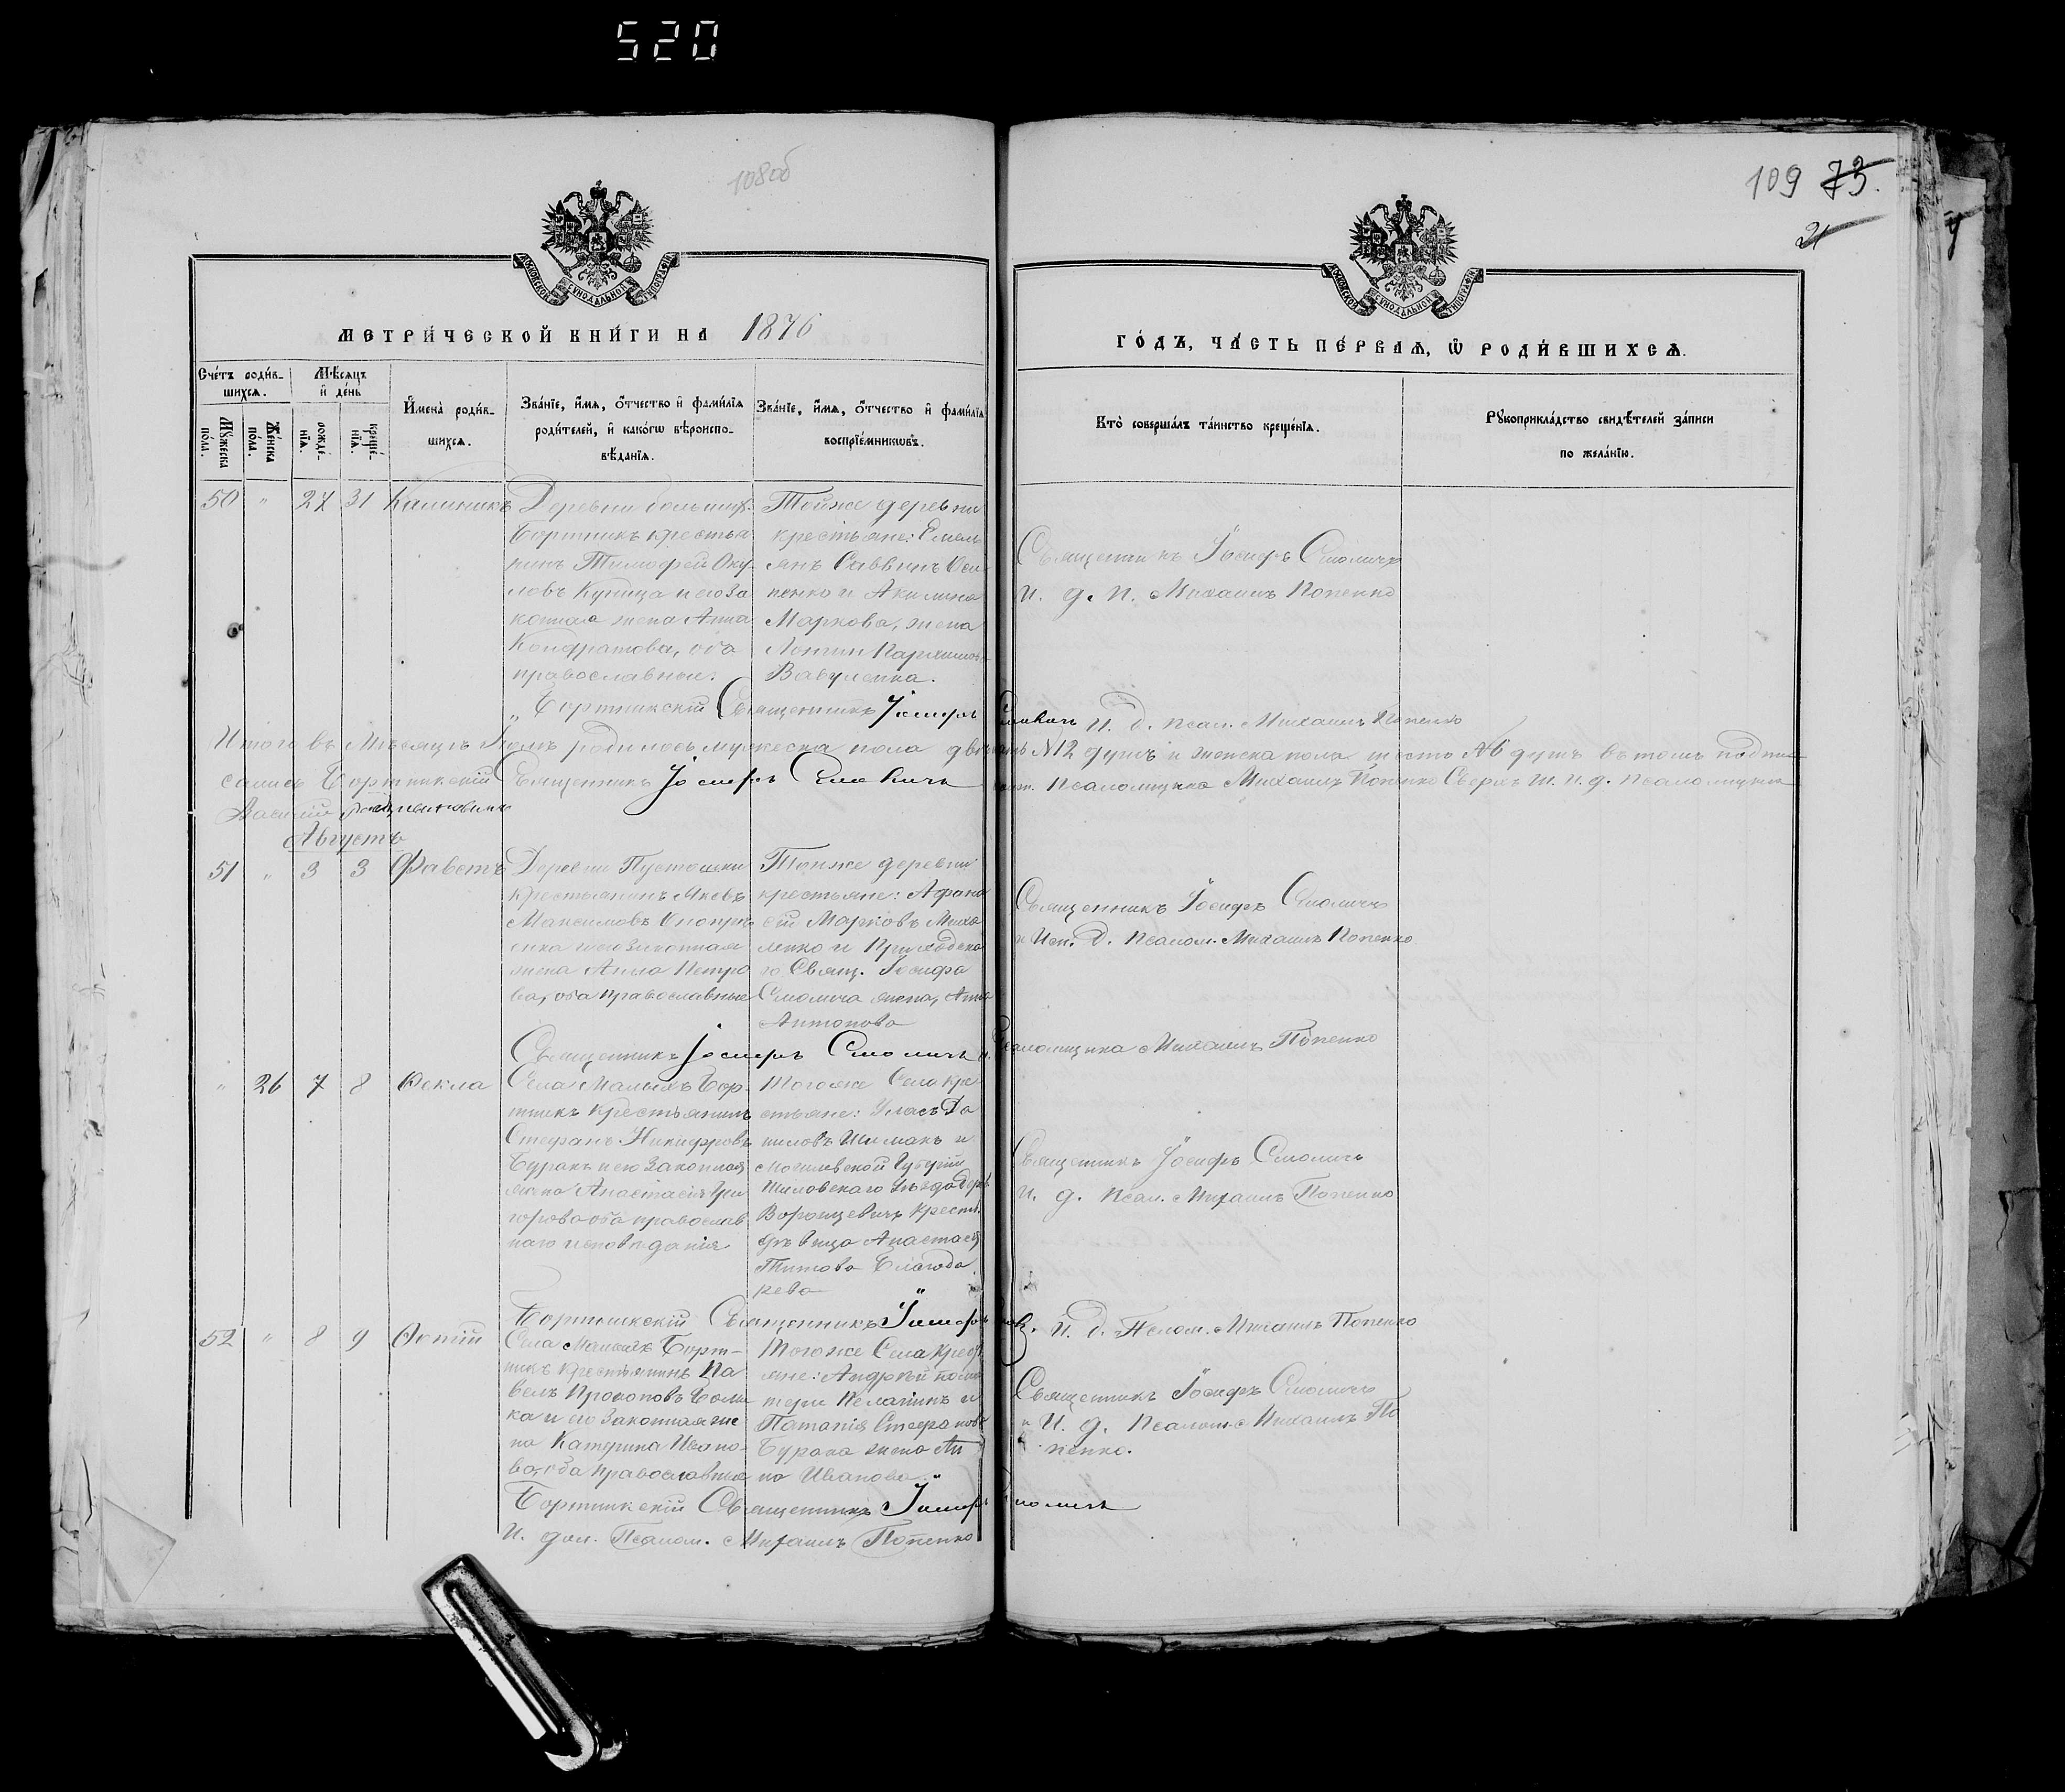 520
108об
109 73.
21
МОСКОВСКОЙ СѴНОДАЛЬНОЙ ТИПОГРАФІИ
МОСКОВСКОЙ СѴНОДАЛЬНОЙ ТИПОГРАФІИ
МЕТРИ́ЧЕСКОЙ КНИ́ГИ НА 1876
ГО́ДЪ, ЧА́СТЬ ПЕ́РВАѦ, Ѿ РОДИ́ВШИХСѦ.
Сче́тъ роди́в-
шихсѧ.
Мꙋ́жеска по́ла.
Же́нска по́ла.
Мѣ́сяцъ
и҆ де́нь
рожде́-
нїѧ.
креще́-
нїѧ.
И҆мена̀ роди́в-
шихсѧ.
Зва́нїе, и҆́мѧ, ѻ҆́тчество и҆ фами́лїѧ
роди́телей, и҆ како́гѡ вѣроиспо-
вѣ́данїѧ.
Зва́нїе, и҆́мѧ, ѻ҆́тчество и҆ фами́лїѧ
воспрїе́мникѡвъ.
Кто̀ соверша́лъ та́инство креще́нїѧ.
Рꙋкоприкла́дство свидѣ́телей за́писи
по жела́нїю.
50 " 27 31 Калиникъ
Деревни большихъ
Бортникъ крестья
нинъ Тимофей Аку-
ловъ Куница и его за
конная жена Анна
Кондратова, оба
православные.
Тойже деревни
крестьяне: Емель
янъ Саввинъ Оси
пенко и Акилина
Маркова, жена
Вавуленка.
Священникъ Іосифъ Смоличъ
И. д. п. Михаилъ Попенко
Бортникскій Священникъ Іосифъ Смоличъ И. д. псал. Михаилъ Попенко
Итого въ Мѣсяцѣ Іюлѣ родилось мужеска пола двѣнадцать №12 душъ и женска пола шесть №6 душъ въ томъ подпи-
сались Бортникскій Священникъ Іосифъ Смоличъ Псаломщика Михаилъ Попенко Сверхъ ш. и. д. псаломщика
Василій
Августъ
51 " 3 3 Фавстъ
Деревни Пустошки
крестьянинъ Яковъ
Максимовъ
и его законная
жена Анна Петро
ва, оба православные
Тойже деревни
крестьяне: Афана
сій Марковъ Миха
ленко и Приходска
го Свящ. Іосифа
Смолича жена, Анна
Антонова
Священникъ Іосифъ Смоличъ
и Исп. д. Псалом. Михаилъ Попенко
Священникъ Іосифъ Смоличъ и. Псаломщика Михаилъ Попенко
" 26 7 8 Фекла
Села Малыхъ Бор-
тникъ крестьянинъ
Стефанъ Никифоровъ
Буракъ и его законная
жена Анастасія Гри
горова оба православ
наго исповѣданія
Тогоже Села кре
стьяне: Уласъ Да
ниловъ Шимакъ и
Могилевской Губерніи
уѣзда дерев.
крест.
дѣвица Анастасія
Титова Благода
рева
Священникъ Іосифъ Смоличъ
И. д. Псал. Михаилъ Попенко
Бортникскій Священникъ Іосифъ И. д. Псалом. Михаилъ Попенко
52 " 8 9
Села Малыхъ Борт-
никъ крестьянинъ Па
велъ Прокоповъ
ка и его законная же
на Катерина Ивано-
ва, оба православные
Тогоже Села крест
яне: Андрей
и
Стефанова
Бурака жена Ан
на Иванова
Священникъ Іосифъ Смоличъ
и И. д. Псалом. Михаилъ По
пенко.
Бортникскій Священникъ Іосифъ Смоличъ
И. дол. Псалом. Михаилъ Попенко